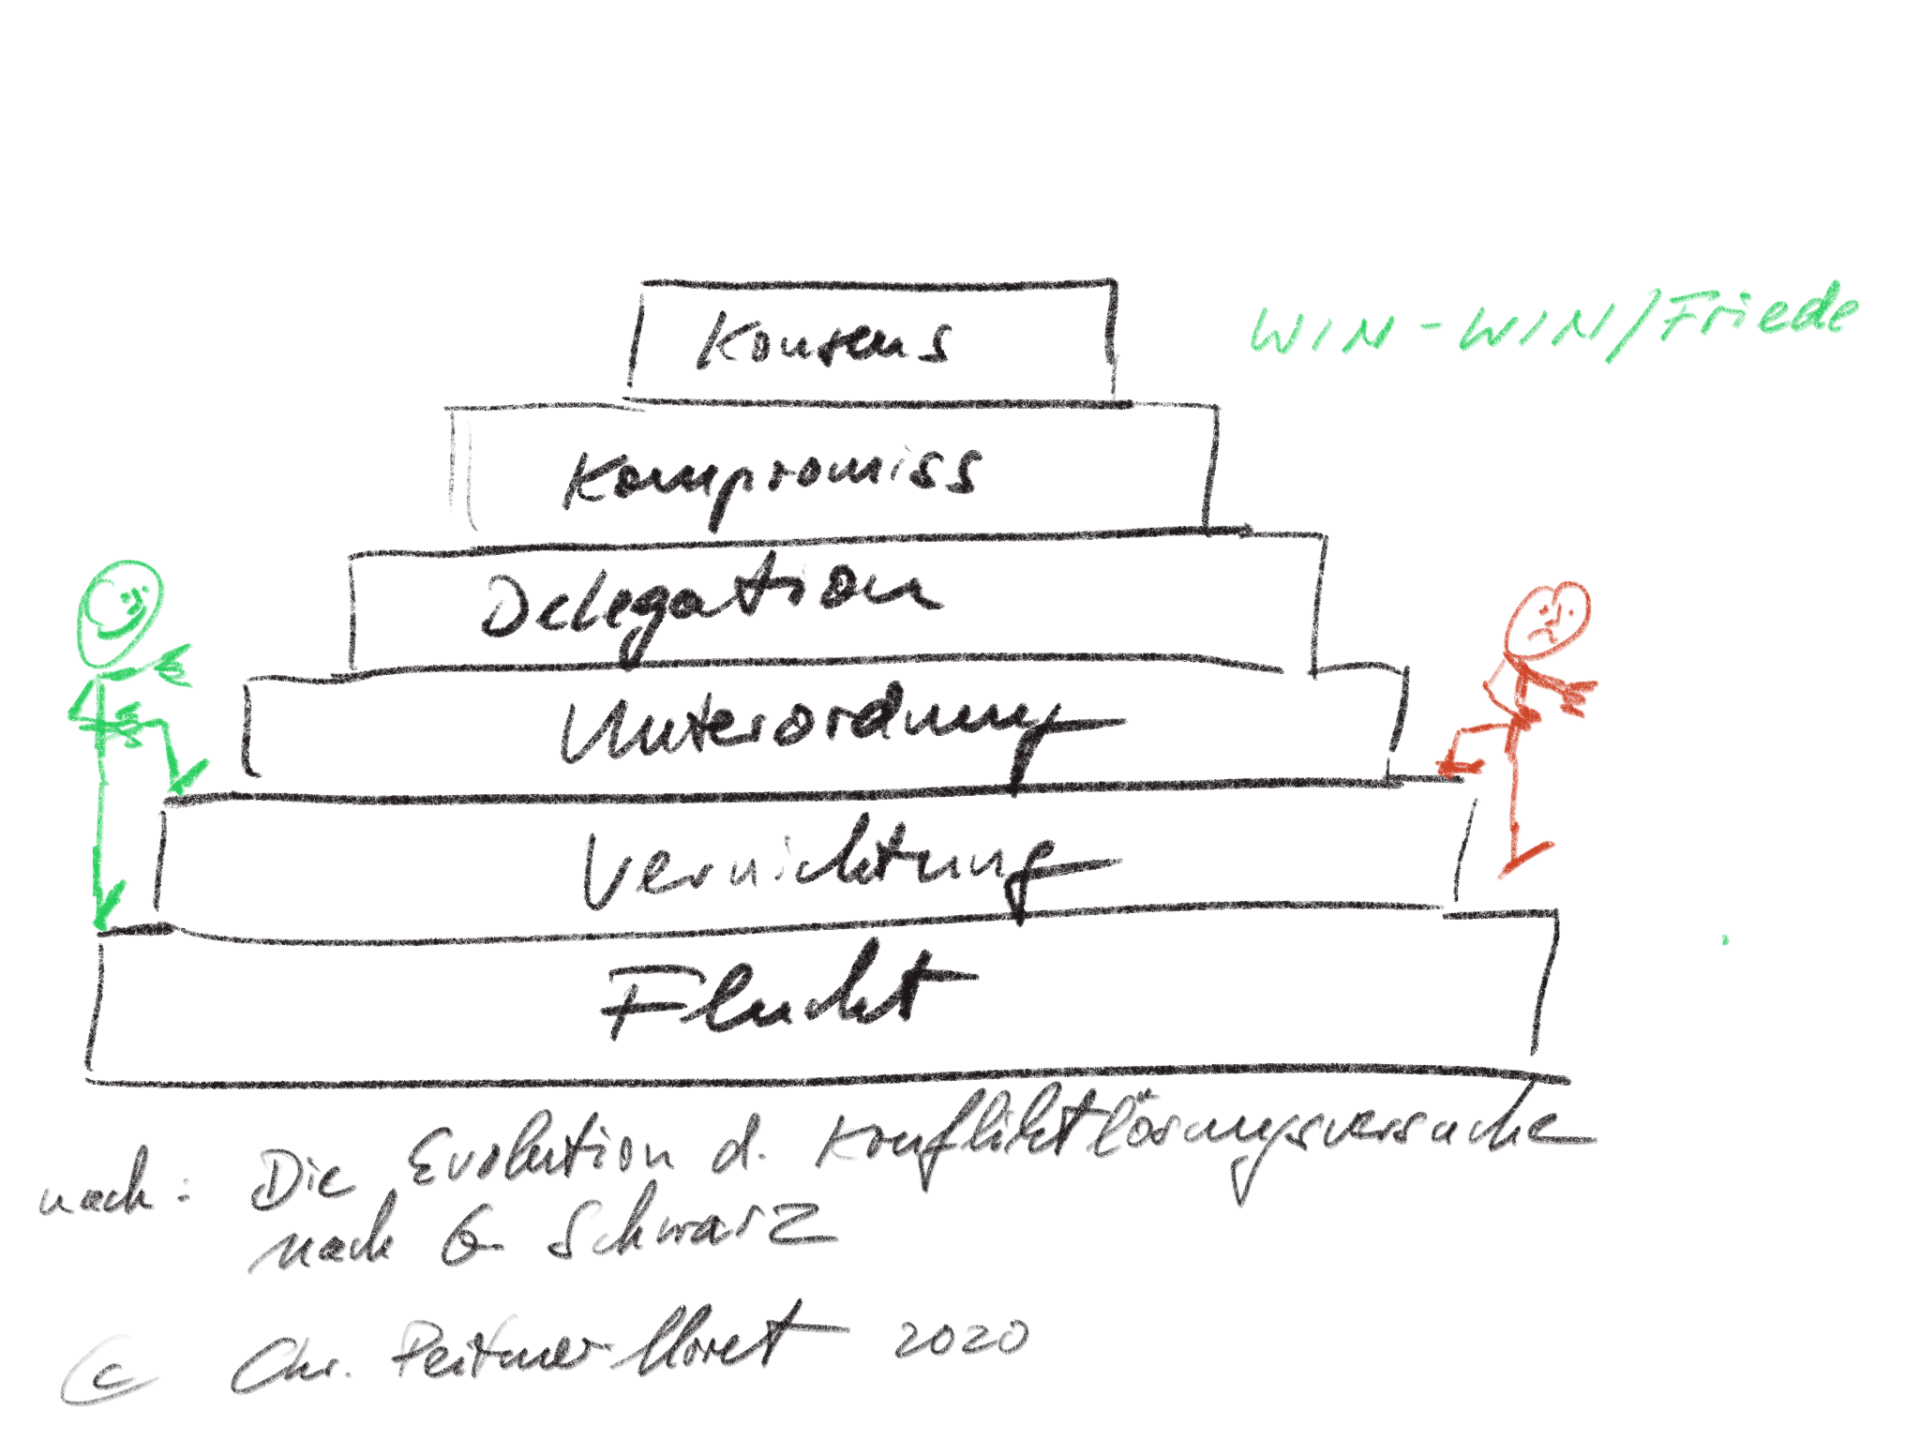 Konsens
WIN-WIN/Friede
Kompromiss
Delegation
Unterordnung
Vernichtung
Flucht
nach: Die Evolution d. Konfliktlösungsversuche
nach G. Schwarz
© Chr. 2020